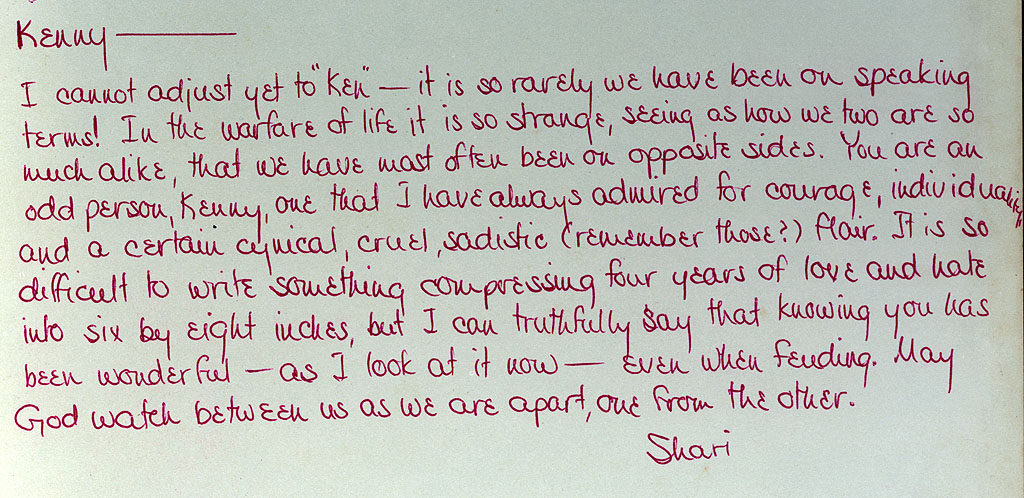 Kenny—
I cannot adjust yet to "Ken" — it is so rarely we have been on speaking
terms! In the warfare of life it is so strange, seeing as how we two are so
much alike, that we have most often been on opposite sides. You are an
odd person, Kenny, one that I have always admired for courage, individuality
and a certain cynical, cruel, sadistic (remember those?) flair. It is so
difficult to write something compressing four years of love and hate
into six by eight inches, but I can truthfully say that knowing you has
been wonderful — as I look at it now — even when feuding. May
God watch between us as we are apart, one from the other.
Shari